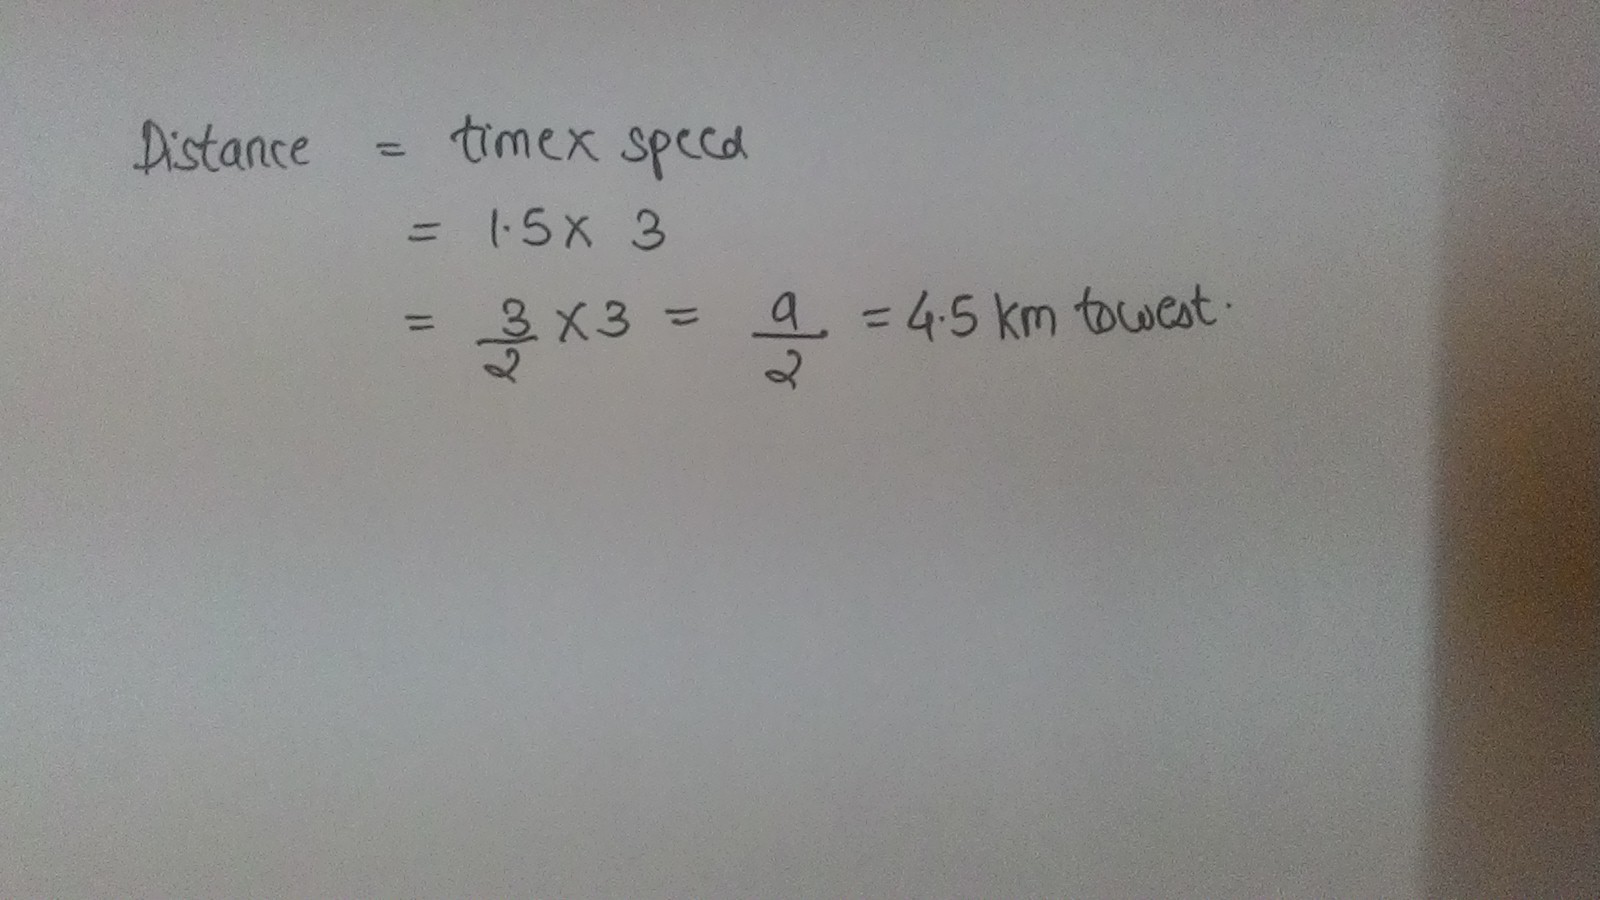 Distance = time x speed
= 1.5 x 3
= 3/2 x 3 = 9/2 = 4.5 km to west.